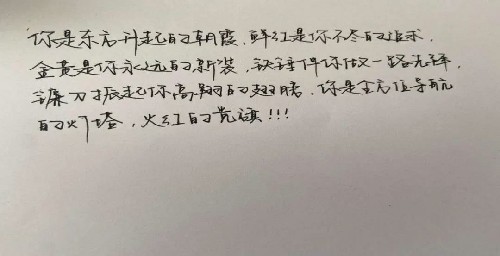 你是东方升起的朝霞，鲜红是你不尽的追求．
金黄是你永远的新装，铁锤伴你做一路先锋，
镰刀振起你高翔的翅膀．你是全方位导航
的灯塔，火红的党旗!!!